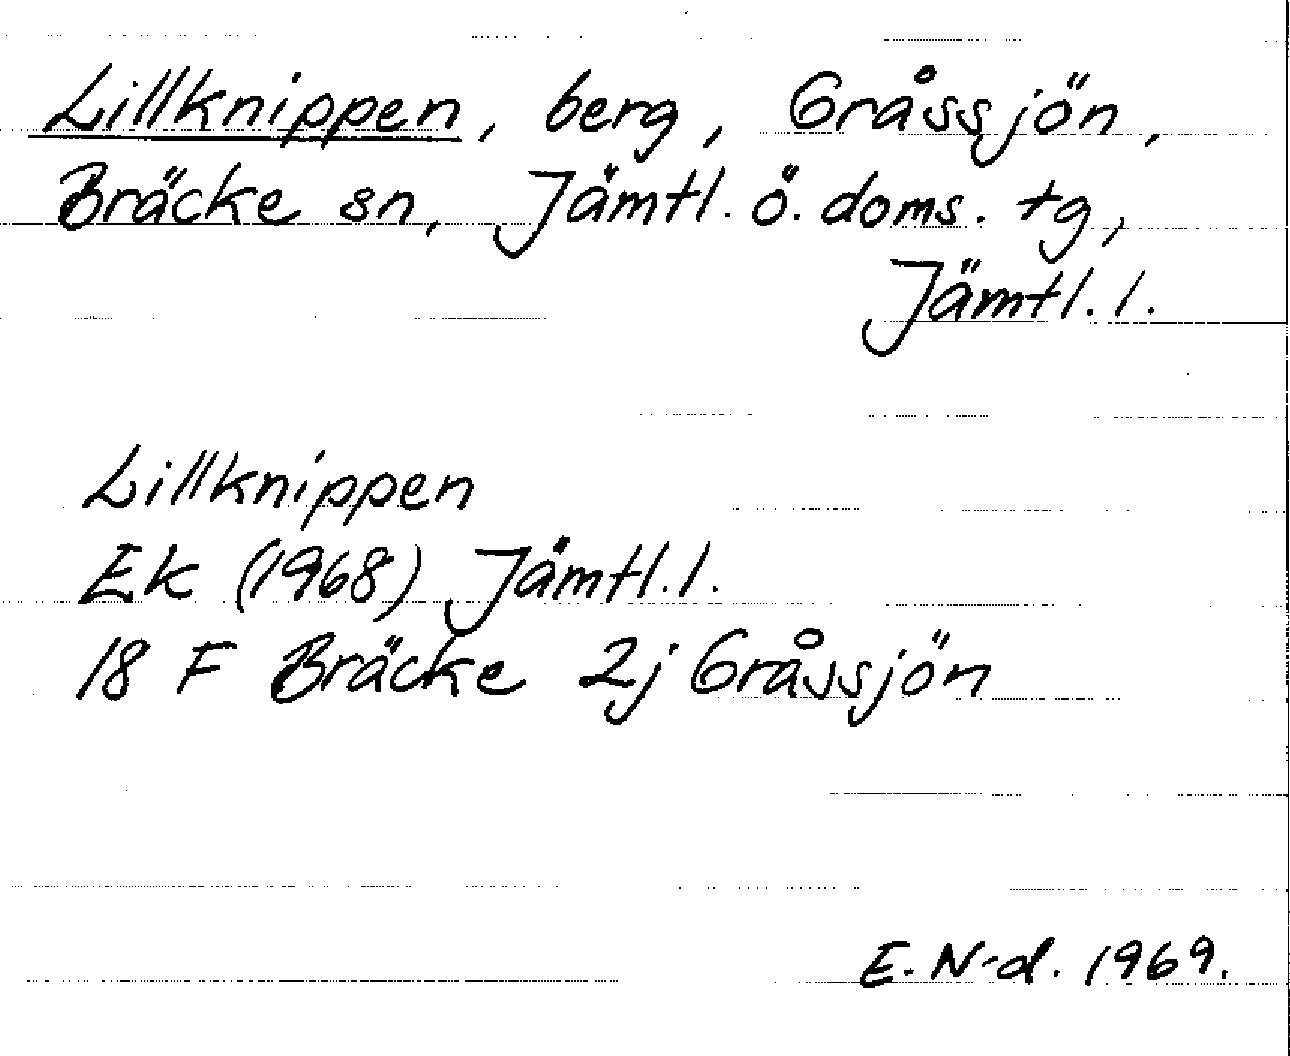 Lillknippen, berg, Gråssjön,
Bräcke sn, Jämtl. ö. doms. tg,
Jämtl. l.
Lillknippen
Ek (1968) Jämtl. l.
18 F Bräcke 2j Gråssjön
E. N-d. 1969.